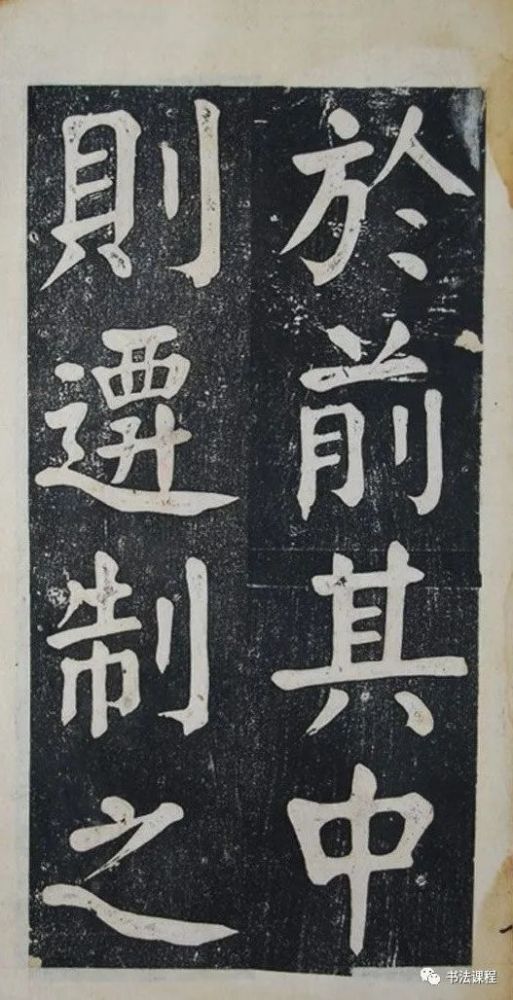 於前其中
則遷制之
书法课程